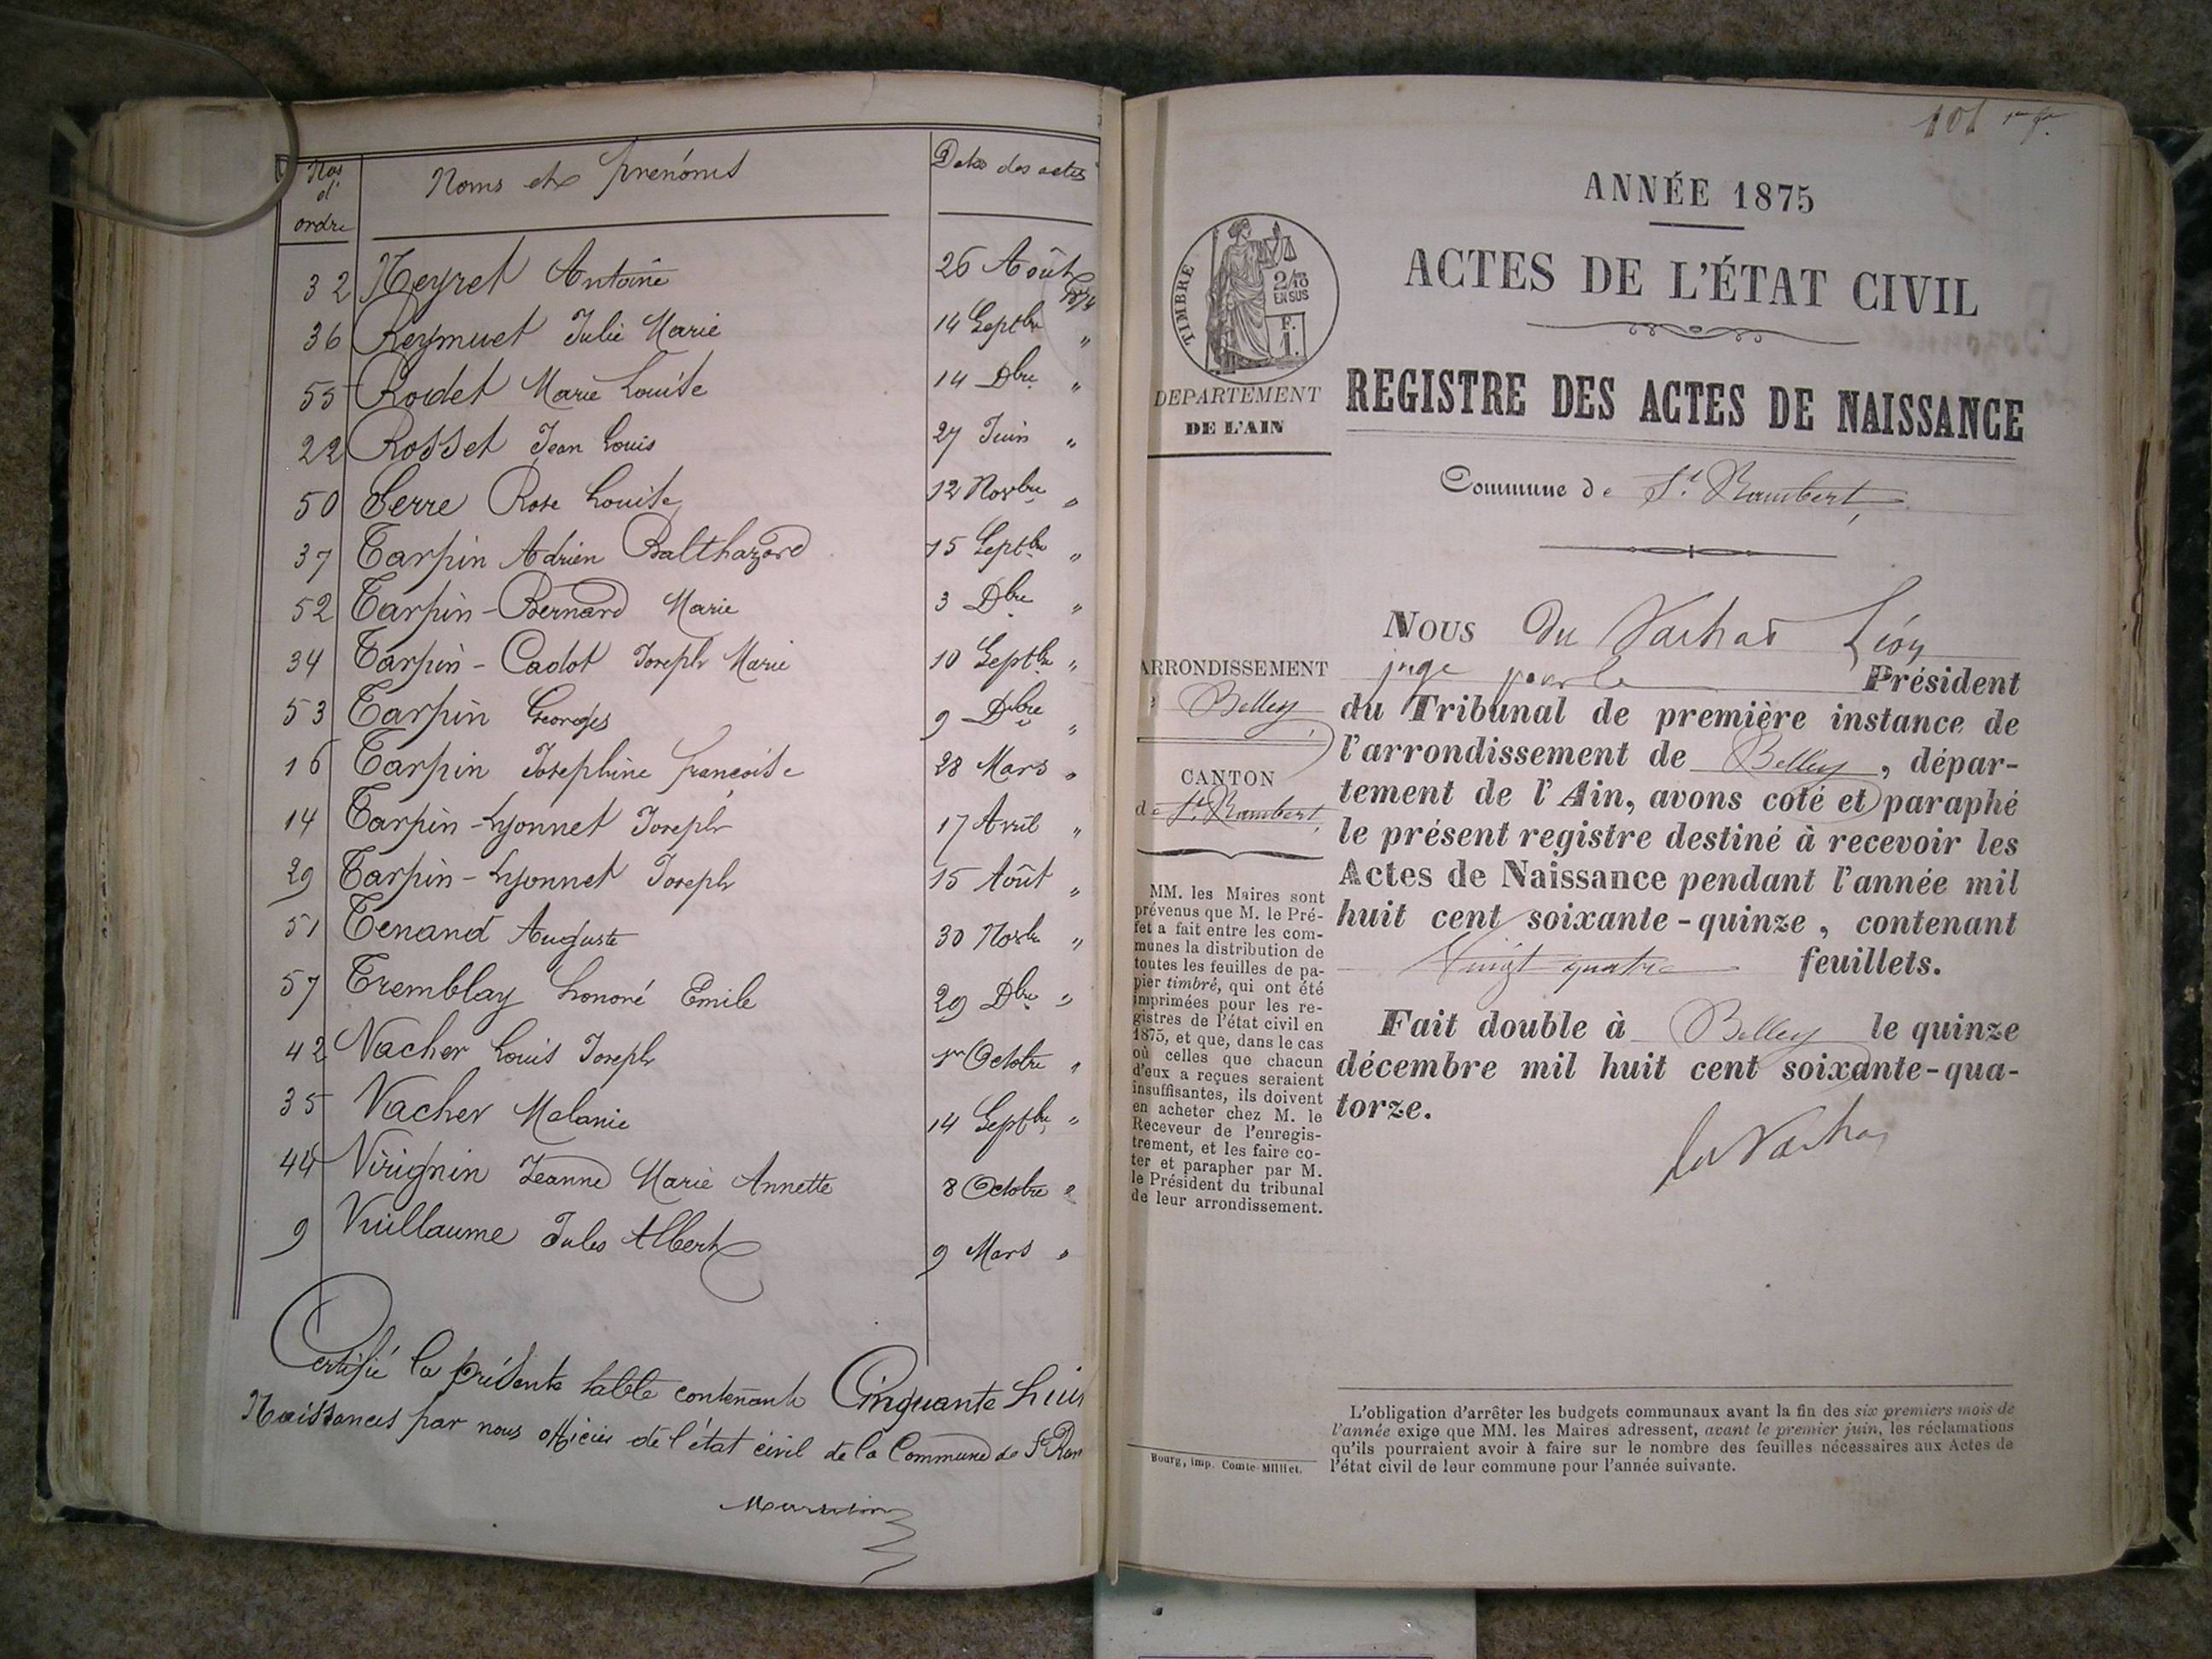 Nos d' ordre
Noms et prénoms
Dates des actes
32 Neyret Antoine 26 Août 1874
36 Reymuet Julie Marie 14 Septbre "
55 Rodet Marie Louise 14 Dbre "
22 Rosset Jean Louis 27 Juin "
50 Serre Rose Louise 12 Novbre "
37 Tarpin Adrien Balthazard 15 Septbre "
52 Tarpin-Bernard Marie 3 Dbre "
34 Tarpin-Cadot Joseph Marie 10 Septbre "
53 Tarpin Georges 9 Dbre "
16 Tarpin Josephine françoise 28 Mars "
14 Tarpin-Lyonnet Joseph 17 Avril "
29 Tarpin-Lyonnet Joseph 15 Août "
51 Tenand Auguste 30 Novbre "
57 Tremblay honoré Emile 29 Dbre "
42 Vacher Louis Joseph 1er Octobre "
35 Vacher Melanie 14 Septbre "
44 Virignin Jeanne Marie Annette 8 Octobre "
9 Vuillaume Jules Albert 9 Mars "
Certifié la présente table contenant Cinquante huit
Naissances par nous officier de l'état civil de la Commune de St Ram
101
ANNÉE 1875
ACTES DE L'ÉTAT CIVIL
REGISTRE DES ACTES DE NAISSANCE
Commune de St. Rambert
TIMBRE
2/10
EN SUS
F.
1.
DEPARTEMENT
DE L'AIN
ARRONDISSEMENT
Belley
CANTON
de St. Rambert
MM. les Maires sont
prévenus que M. le Pré-
fet a fait entre les com-
munes la distribution de
toutes les feuilles de pa-
pier timbré, qui ont été
imprimées pour les re-
gistres de l'état civil en
1875, et que, dans le cas
où celles que chacun
d'eux a reçues seraient
insuffisantes, ils doivent
en acheter chez M. le
Receveur de l'enregis-
trement, et les faire co-
ter et parapher par M.
le Président du tribunal
de leur arrondissement.
Bourg, imp. Comte-Milliet.
NOUS Du Vachat Léon
juge pour le Président
du Tribunal de première instance de
l'arrondissement de Belley, dépar-
tement de l'Ain, avons coté et paraphé
le présent registre destiné à recevoir les
Actes de Naissance pendant l'année mil
huit cent soixante-quinze, contenant
Vingt quatre feuillets.
Fait double à Belley le quinze
décembre mil huit cent soixante-qua-
torze.
L'obligation d'arrêter les budgets communaux avant la fin des six premiers mois de
l'année exige que MM. les Maires adressent, avant le premier juin, les réclamations
qu'ils pourraient avoir à faire sur le nombre des feuilles nécessaires aux Actes de
l'état civil de leur commune pour l'année suivante.